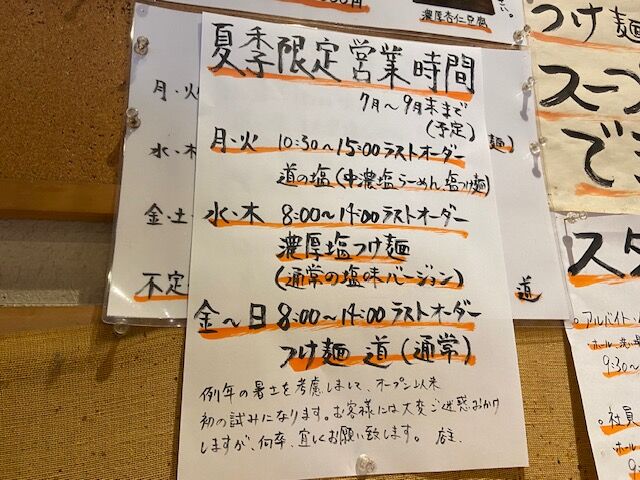 濃厚杏仁豆腐
夏季限定営業時間
7月～9月末まで
(予定)
月・火 10:30～15:00ラストオーダー
道の塩(中濃塩らーめん、塩つけ麺)
水・木 8:00～14:00ラストオーダー
濃厚塩つけ麺
(通常の塩味バージョン)
金～日 8:00～14:00ラストオーダー
つけ麺 道(通常)
例年の暑さを考慮しまして、オープン以来
初の試みになります。お客様には大変ご迷惑おかけ
しますが、何卒、宜しくお願い致します。 店主.
月・火
水・木
金・土
不定
麺)
道
つけ麺
スープ
でき
スタ
。アルバイト・
ホール・洗い場
9:30～
。社員
ホール